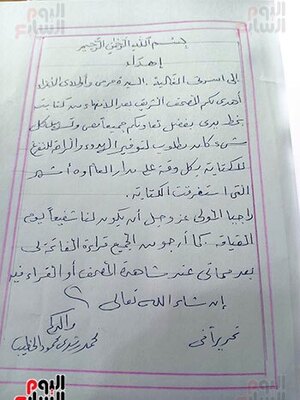 اليوم السابع
بسم الله الرحمن الرحيم
إهداء
إلى أسرتي الغالية السيدة حرمي وأولادي الأعزاء
أهدي لكم المصحف الشريف بعد الانتهاء من كتابته
بخط يدي بفضل تعاونكم جميعاً معي وتسهيل كل
شيء كان مطلوب لتوفير الهدوء والراحة للتفرغ
للكتابة بكل دقة على مدار الـ أشهر
التي استغرقت الكتابة.
راجياً المولى عز وجل أن يكون لنا شفيعاً يوم
القيامة. كما أرجو من الجميع قراءة الفاتحة لي
بعد مماتي عند مشاهدة المصحف أو القراءة فيه
إن شاء الله تعالى
والدكم
تحريراً في
محمود الخطيب
اليوم السابع